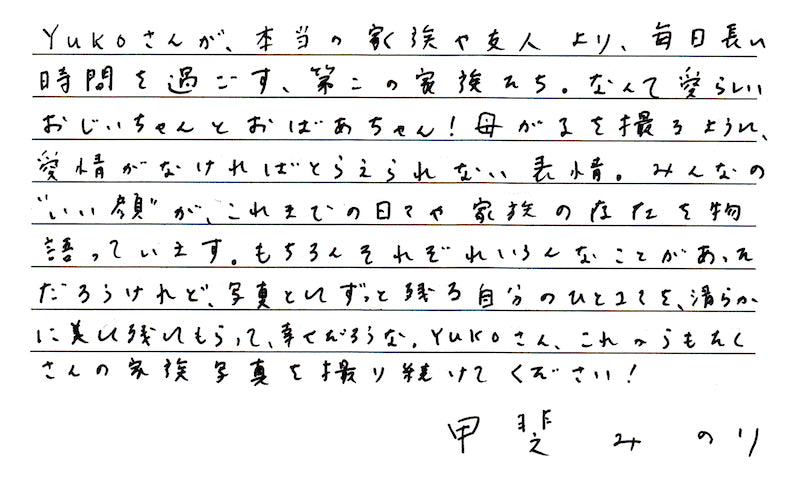 Yukoさんが、本当の家族や友人より、毎日長い
時間を過ごす、第二の家族たち。なんて愛らしい
おじいちゃんとおばあちゃん！母が子を撮るように、
愛情がなければとらえられない表情。みんなの
“いい顔”が、これまでの日々や家族の存在を物
語っています。もちろんそれぞれいろんなことがあった
だろうけれど、写真としてずっと残る自分のひとコマを、清らか
に美しく残してもらって、幸せだろうな。Yukoさん、これからもたく
さんの家族写真を撮り続けてください！
甲斐みのり